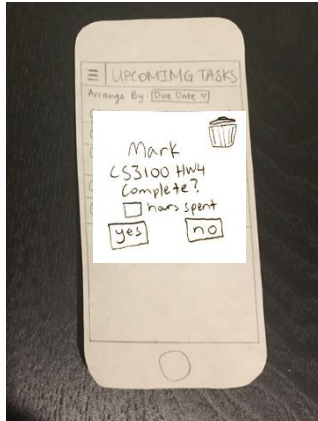 UPCOMIMG TASKS
Arrange By: Due Date
Mark
CS3100 HW4
Complete?
hours spent
yes no